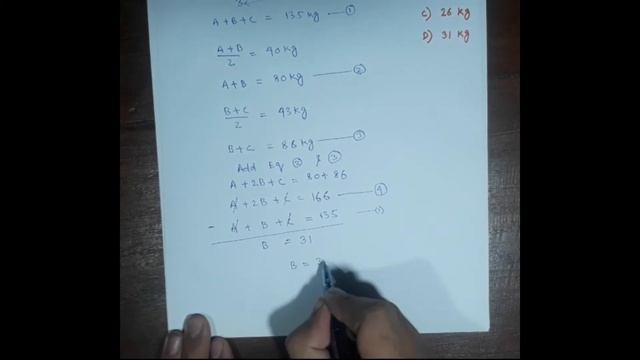 A+B+C = 135 kg —①
C) 26 kg
D) 31 kg
A+B/2 = 40kg
A+B = 80kg —②
B+C/2 = 43kg
B+C = 86kg —③
Add Eq ② & ③
A+2B+C = 80+86
A+2B+C = 166 —④
- A+B+C = 135 —①
B = 31
B = 3